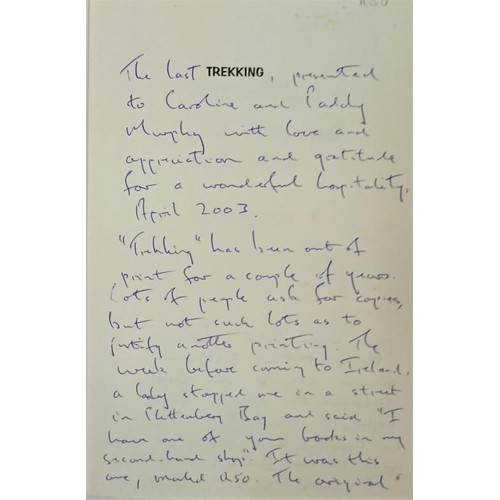 R50
The last TREKKING, presented
to Caroline and Paddy
Murphy with love and
appreciation and gratitude
for a wonderful hospitality,
April 2003.
"Trekking" has been out of
print for a couple of years.
Lots of people ask for copies,
but not such lots as to
justify another printing. The
week before coming to Ireland,
a lady stopped me in a street
in Plettenberg Bay and said "I
have one of your books in my
second-hand shop". It was this
one, marked R50. The original